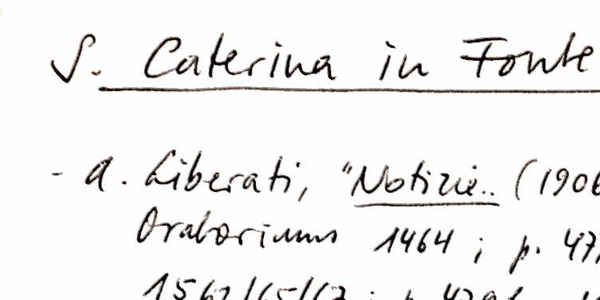 S. Caterina in Fonte
- A. Liberati, "Notizie.. (1906
Oratoriums 1464 ; p. 47